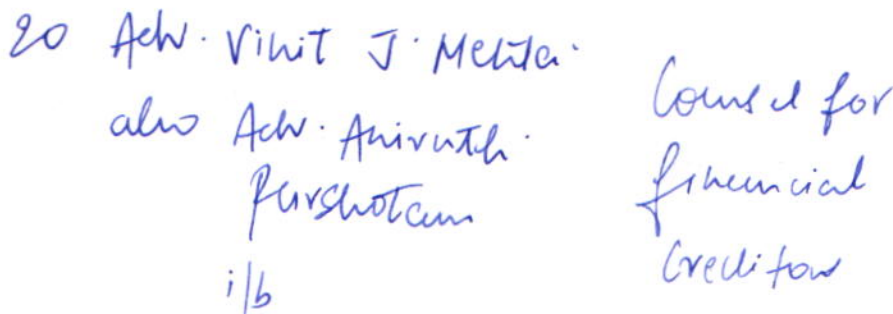 20 Adv. Vinit J. Mehta.
also Adv. Aniruth.
Purshotam
i/b
Counsel for
financial
Creditors